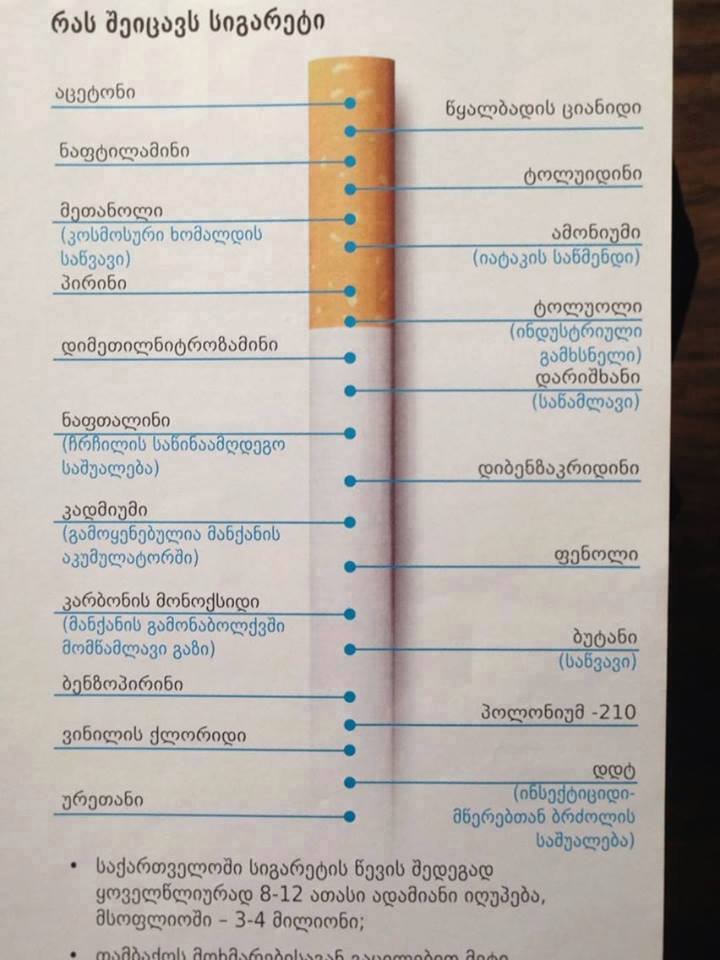 რას შეიცავს სიგარეტი
აცეტონი
ნაფტილამინი
მეთანოლი
(კოსმოსური ხომალდის
საწვავი)
პირინი
დიმეთილნიტროზამინი
ნაფთალინი
(ჩრჩილის საწინაამღდეგო
საშუალება)
კადმიუმი
(გამოყენებულია მანქანის
აკუმულატორში)
კარბონის მონოქსიდი
(მანქანის გამონაბოლქვში
მომწამლავი გაზი)
ბენზოპირინი
ვინილის ქლორიდი
ურეთანი
წყალბადის ციანიდი
ტოლუიდინი
ამონიუმი
(იატაკის საწმენდი)
ტოლუოლი
(ინდუსტრიული
გამხსნელი)
დარიშხანი
(საწამლავი)
დიბენზაკრიდინი
ფენოლი
ბუტანი
(საწვავი)
პოლონიუმ -210
დდტ
(ინსექტიციდი-
მწერებთან ბრძოლის
საშუალება)
• საქართველოში სიგარეტის წევის შედეგად
ყოველწლიურად 8-12 ათასი ადამიანი იღუპება,
მსოფლიოში – 3-4 მილიონი;
• თამბაქოს მოხმარებისაგან გაცილებით მეტი